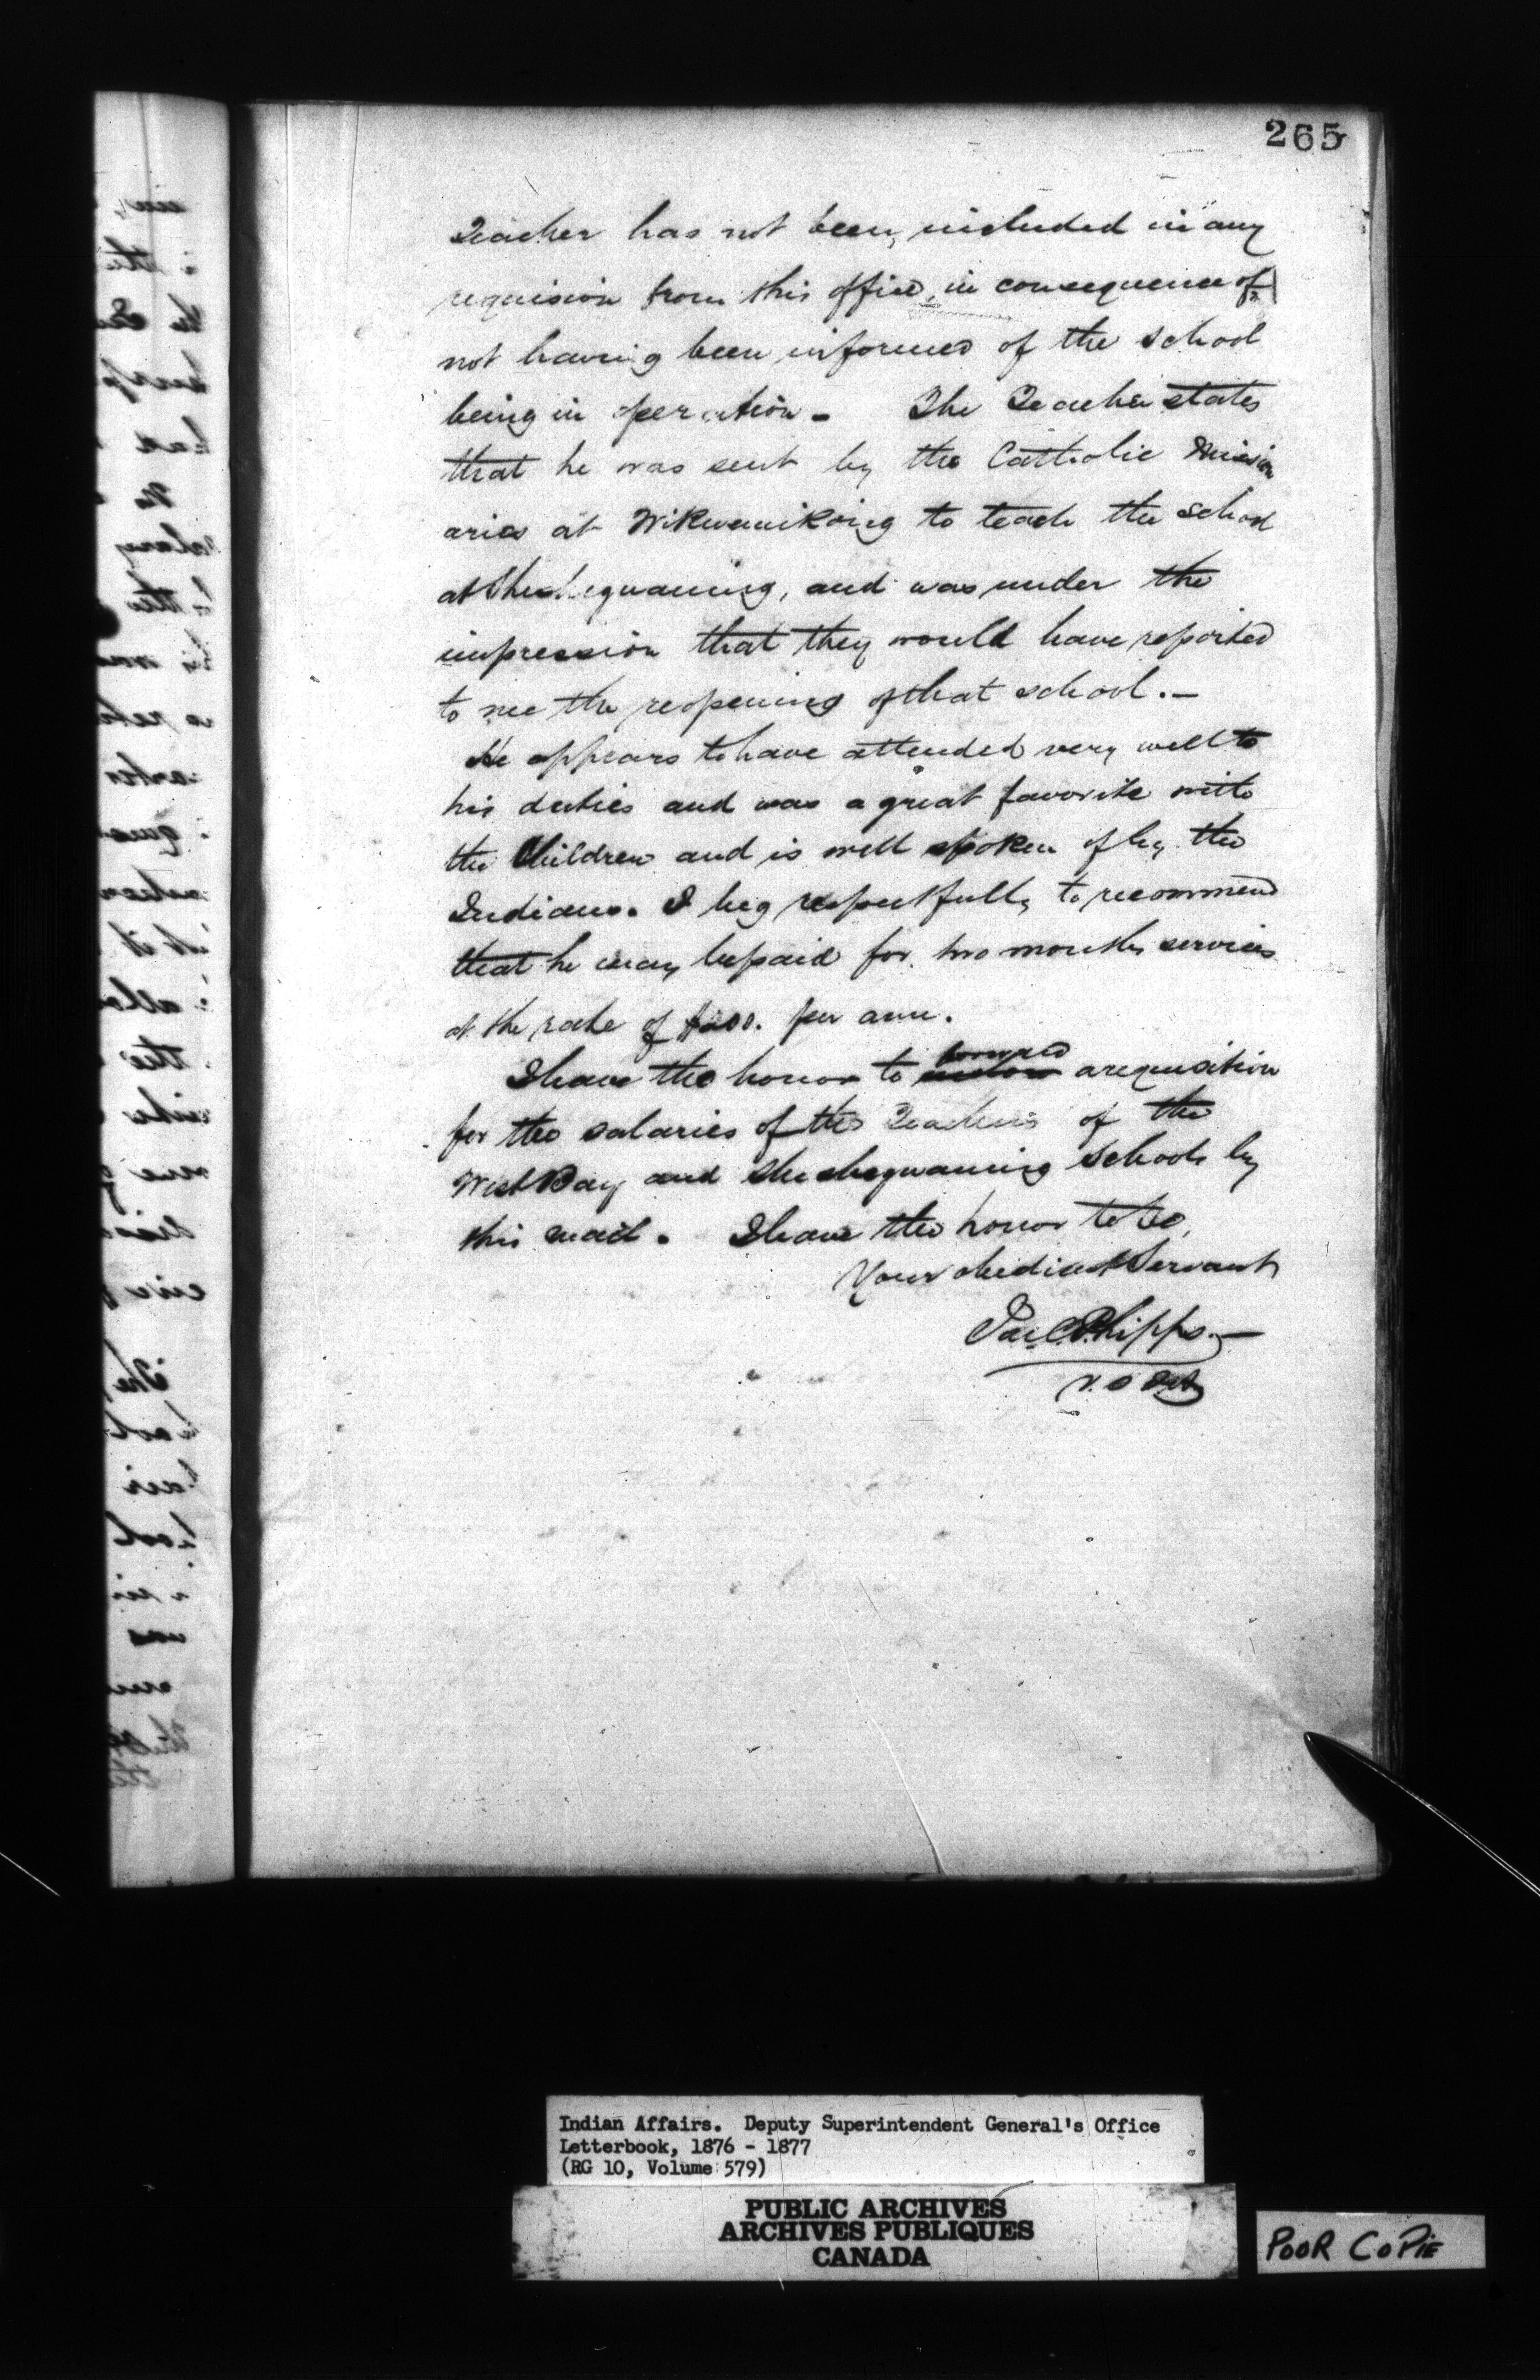 265
Teacher has not been included in any
requision from this office, in consequence of
not having been informed of the school
being in operation - The Teacher states
that he was sent by the Catholic Mission
aries at Wikwemikong to teach the school
at Sheshegwaning, and was under the
impression that they would have reported
to me the reopening of that school. -
He appears to have attended very well to
his duties and was a great favorite with
the Children and is well spoken of by the
Indians. I beg respectfully to recommend
that he may be paid for two months services
at the rate of $200. per ann.
forward
I have the honor to a requisition
for the salaries of the Teachers of the
West Bay and Sheshegwaning Schools by
this mail. I have the honor to be
Your obedient Servant
Jas. C. Phipps. -
V. S
Indian Affairs. Deputy Superintendent General's Office
Letterbook, 1876 - 1877
(RG 10, Volume 579)
PUBLIC ARCHIVES
ARCHIVES PUBLIQUES
CANADA
POOR COPIE